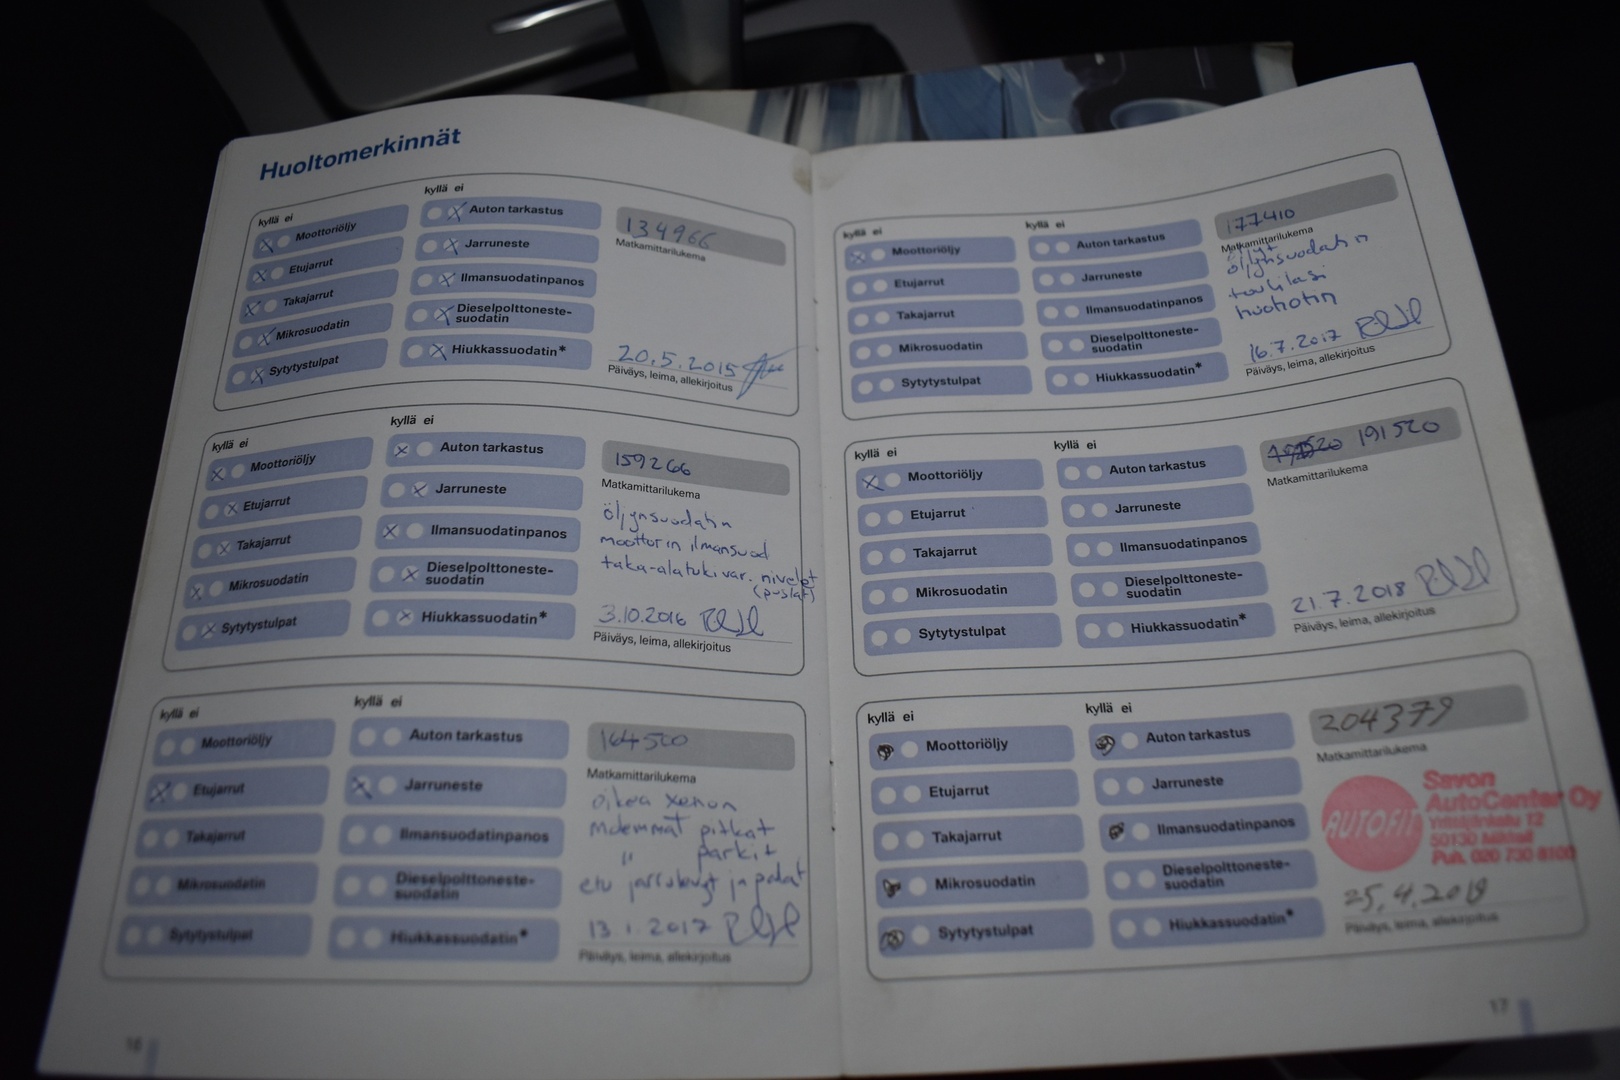 Huoltomerkinnät
kyllä ei
Moottoriöljy
Etujarrut
Takajarrut
Mikrosuodatin
Sytytystulpat
kyllä ei
Auton tarkastus
Jarruneste
Ilmansuodatinpanos
Dieselpolttoneste-
suodatin
Hiukkassuodatin*
134966
Matkamittarilukema
20.5.2015
Päiväys, leima, allekirjoitus
kyllä ei
Moottoriöljy
Etujarrut
Takajarrut
Mikrosuodatin
Sytytystulpat
kyllä ei
Auton tarkastus
Jarruneste
Ilmansuodatinpanos
Dieselpolttoneste-
suodatin
Hiukkassuodatin*
159266
Matkamittarilukema
öljynsuodatin
moottorin ilmansuod
taka-alatukivar. nivelet
(puslat)
3.10.2016
Päiväys, leima, allekirjoitus
kyllä ei
Moottoriöljy
Etujarrut
Takajarrut
Mikrosuodatin
Sytytystulpat
kyllä ei
Auton tarkastus
Jarruneste
Ilmansuodatinpanos
Dieselpolttoneste-
suodatin
Hiukkassuodatin*
164500
Matkamittarilukema
oikea xenon
molemmat pitkat
" parkit
etu jarrulevyt ja palat
13.1.2017
Päiväys, leima, allekirjoitus
16
kyllä ei
Moottoriöljy
Etujarrut
Takajarrut
Mikrosuodatin
Sytytystulpat
kyllä ei
Auton tarkastus
Jarruneste
Ilmansuodatinpanos
Dieselpolttoneste-
suodatin
Hiukkassuodatin*
177410
Matkamittarilukema
öljyt
öljynsuodatin
tuulilasi
huohotin
16.7.2017
Päiväys, leima, allekirjoitus
kyllä ei
Moottoriöljy
Etujarrut
Takajarrut
Mikrosuodatin
Sytytystulpat
kyllä ei
Auton tarkastus
Jarruneste
Ilmansuodatinpanos
Dieselpolttoneste-
suodatin
Hiukkassuodatin*
191520
Matkamittarilukema
21.7.2018
Päiväys, leima, allekirjoitus
kyllä ei
Moottoriöljy
Etujarrut
Takajarrut
Mikrosuodatin
Sytytystulpat
kyllä ei
Auton tarkastus
Jarruneste
Ilmansuodatinpanos
Dieselpolttoneste-
suodatin
Hiukkassuodatin*
204379
Matkamittarilukema
AUTOFIT
Savon
AutoCenter Oy
Yrittäjänkatu 12
50130 Mikkeli
Puh. 020 730 8100
25.4.2019
Päiväys, leima, allekirjoitus
17